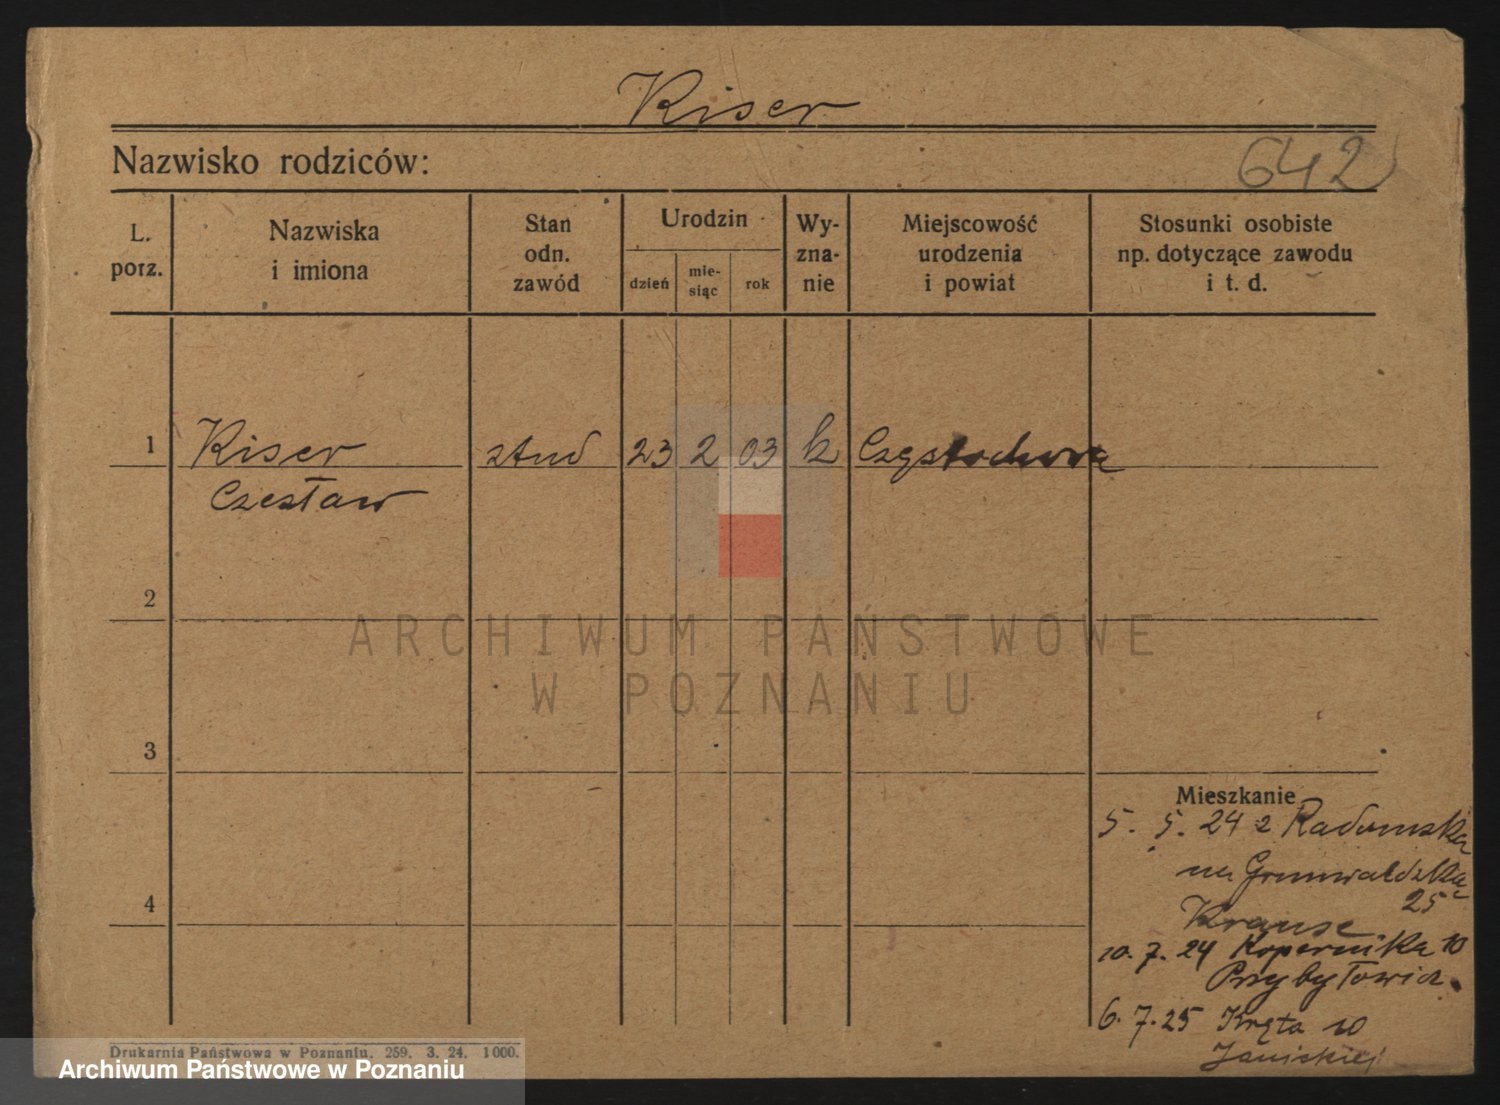 Kiser
Nazwisko rodziców:
642
L. porz.
Nazwiska i imiona
Stan odn. zawód
Urodzin
dzień
mie-siąc
rok
Wy-zna-nie
Miejscowość urodzenia i powiat
Stosunki osobiste np. dotyczące zawodu i t. d.
1 Kiser stud 23 2 03 k Częstochowa
Czesław
2
ARCHIWUM PAŃSTWOWE
W POZNANIU
3
Mieszkanie
5. 5. 24 z Radomska
na Grunwaldzka
25
4
Krause
10. 7. 24 Kopernika 10
6. 7. 25 Kręta 10
Janickiej
Drukarnia Państwowa w Poznaniu. 259. 3. 24. 1000.
Archiwum Państwowe w Poznaniu